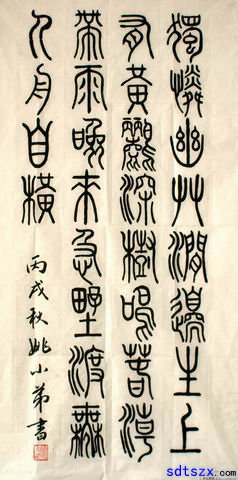 獨憐幽艸澗邊生上
有黃鸝深樹鳴萅潮
帶雨晚來急野渡無
人舟自橫
丙戌秋姚小弟書
sdtszx.com